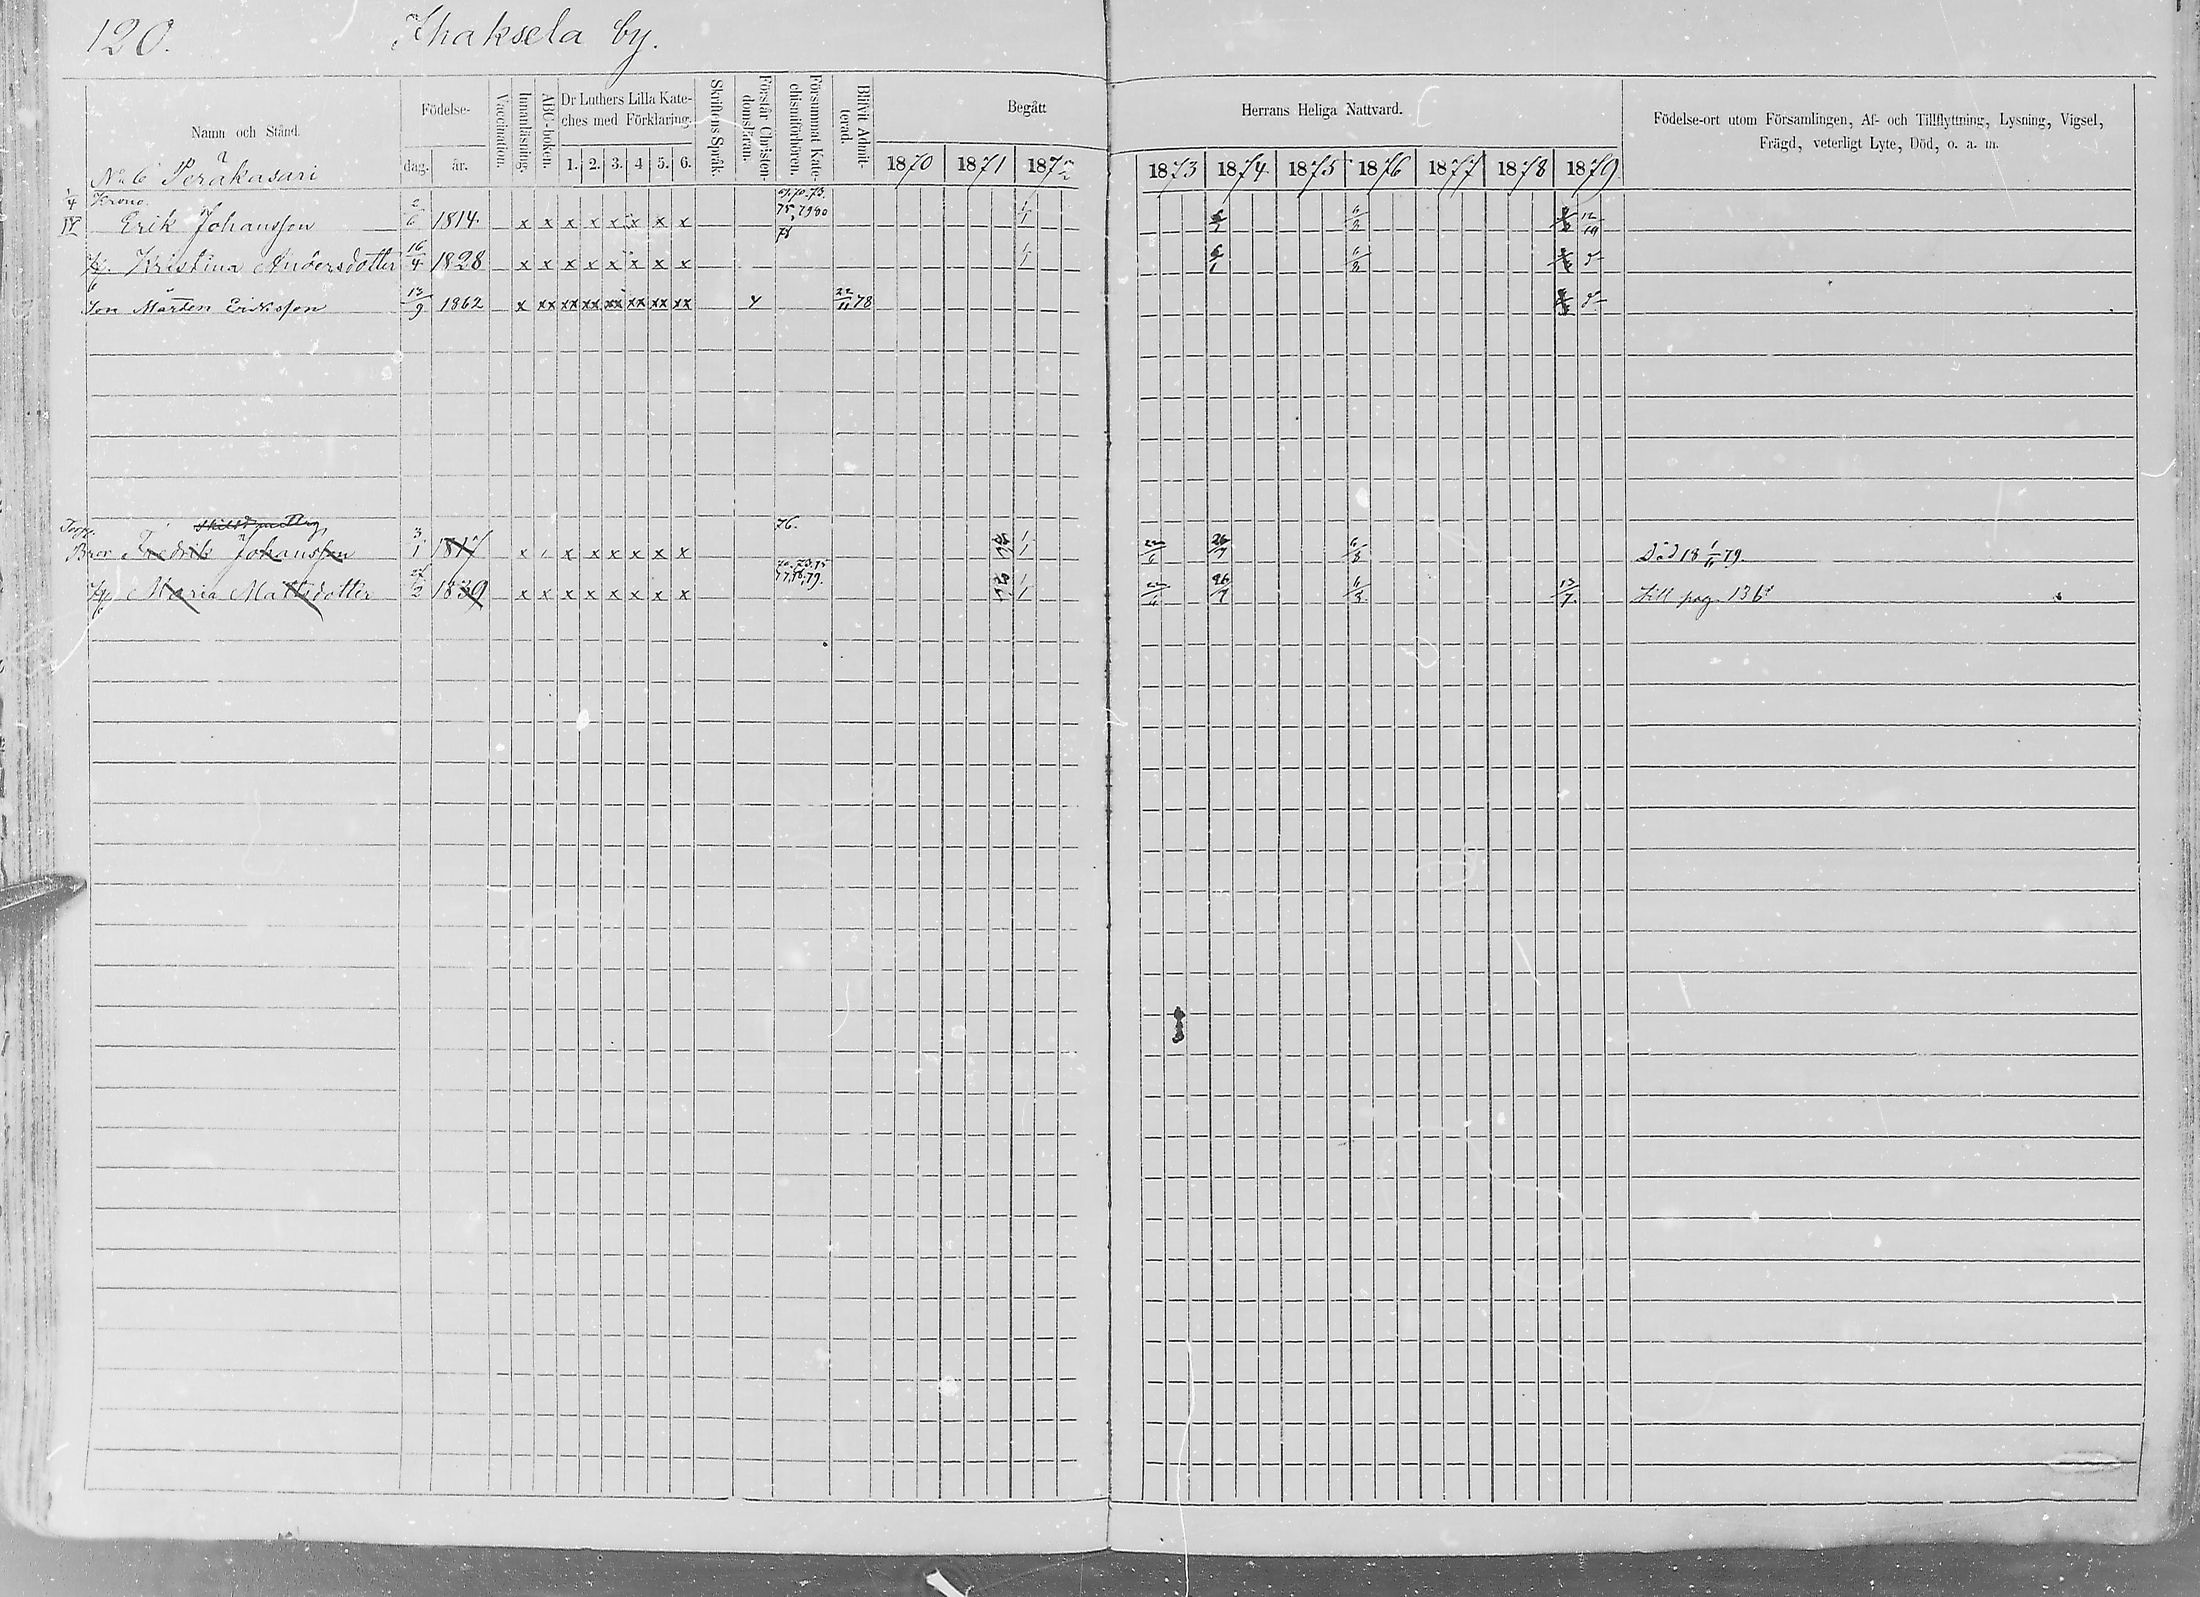 120. Ihaksela by.
Namn och Stånd.
Födelse-
dag. år.
Vaccination.
Innanläsning.
ABC-boken.
Dr Luthers Lilla Kate-
ches med Förklaring.
1. 2. 3. 4 5. 6.
Skriftens Språk.
Förstår Christen-
domsläran.
Försummat Kate-
chismiförhören.
Blifvit Admit-
terad.
Begått
1870 1871 1872
Herrans Heliga Nattvard.
1873 1874 1875 1876 1877 1878 1879
Födelse-ort utom Församlingen, Af- och Tillflyttning, Lysning, Vigsel,
Frägd, veterligt Lyte, Död, o. a. m.
No 6 Peräkasari
1/4 Krono
Erik Johansson 2/6 1814 x x x x x x x x 75, 79 80 78 1/1 6/3 12/10
H. Kristina Andersdotter 16/4 1828 x x x x x x x x 1/1 6/3 do
Son Mårten Eriksson 13/9 1862 x xx xx xx xx xx xx xx 22/11 78 do
Torp.
Bror Fredrik Johansson 3/1 1817 x x x x x x x 76. 1/1 26/7 6/3 Död 18 1/11 79.
H. Maria Mattsdotter 1839 x x x x x x x x 1/1 26/7 6/3 13/7 Till pag. 136